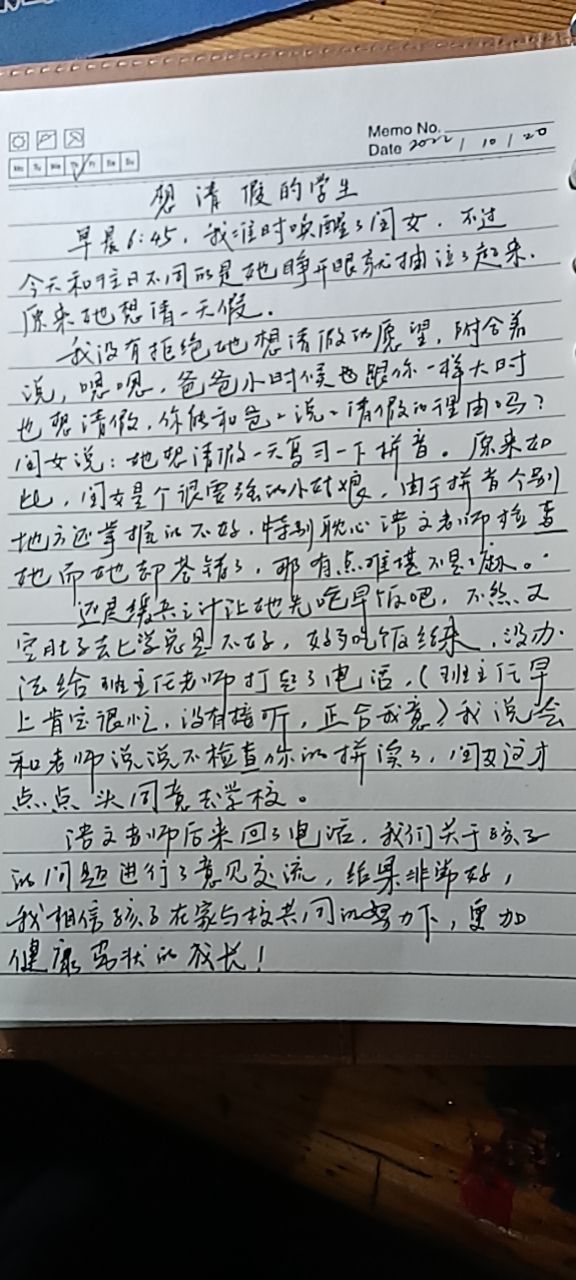 Memo No.
Date 2022 / 10 / 20
Mo Tu We Th Fr Sa Su
想请假的学生
早晨6:45，我准时唤醒了闺女．不过
今天和往日不同的是她睁开眼就抽泣了起来．
原来她想请一天假．
我没有拒绝她想请假的愿望，附合着
说，嗯嗯，爸爸小时候也跟你一样大时
也想请假，你能和爸爸说一说请假的理由吗？
闺女说：她想请假一天复习一下拼音。原来如
此，闺女是个很要强的小姑娘，由于拼音个别
地方还掌握的不好，特别耽心语文老师检查
她而她却答错了，那有点难堪不是嘛。
还是缓兵之计让她先吃早饭吧，不然又
空肚子去上学总是不好，好歹吃饭结束，没办
法给班主任老师打起了电话，（班主任早
上肯定很忙，没有接听，正合我意）我说会
和老师说说不检查你的拼读了，闺女这才
点点头同意去学校。
语文老师后来回了电话，我们关于孩子
的问题进行了意见交流，结果非常好，
我相信孩子在家与校共同的努力下，更加
健康茁状的成长！